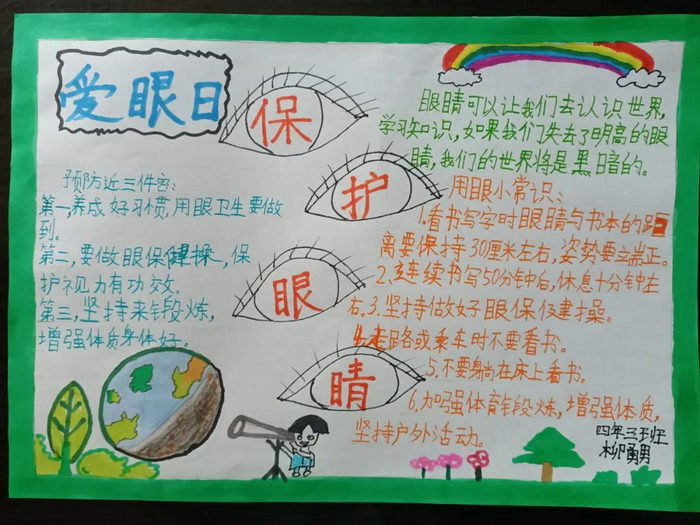 爱眼日
保
护
眼
睛
预防近三件宝:
第一,养成好习惯,用眼卫生要做
到。
第二,要做眼保健操,保
护视力有功效。
第三,坚持来锻炼,
增强体质身体好。
眼睛可以让我们去认识世界,
学习知识,如果我们失去了明高的眼
睛,我们的世界将是黑暗的。
用眼小常识:
1.看书写字时眼睛与书本的距
离要保持30厘米左右,姿势要端正。
2.连续书写50分钟后,休息十分钟左
右。3.坚持做好眼保健操。
4.走路或乘车时不要看书。
5.不要躺在床上看书。
6.加强体育锻炼,增强体质,
坚持户外活动。
四年三班
柳勇男